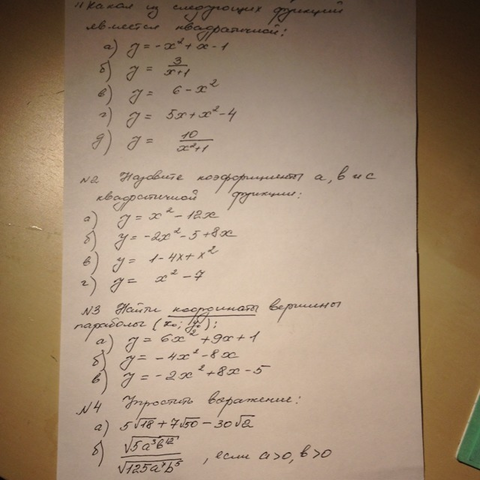 №1 Какая из следующих функций
является квадратичной:
а) y = -x² + x - 1
б) y = 3/(x+1)
в) y = 6 - x²
г) y = 5x + x² - 4
д) y = 10/(x²+1)
№2 Назовите коэффициенты а, в и с
квадратичной функции:
а) y = x² - 12x
б) y = -2x² - 5 + 8x
в) y = 1 - 4x + x²
г) y = x² - 7
№3 Найти координаты вершины
параболы (x₀; y₀);
а) y = 6x² + 9x + 1
б) y = -4x² - 8x
в) y = -2x² + 8x - 5
№4 Упростить выражение:
а) 5√18 + 7√50 - 30√2
б) √(5a³b¹²)/√(125a³b⁵), если a>0, b>0